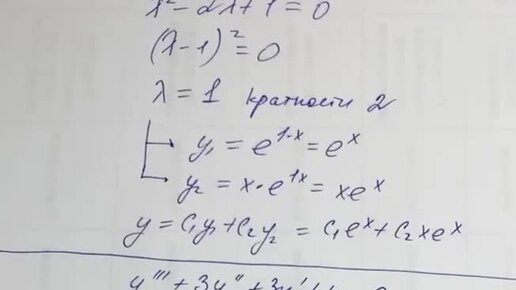 λ² - 2λ + 1 = 0
(λ - 1)² = 0
λ = 1 кратности 2
y₁ = e^{1·x} = e^x
y₂ = x · e^{1x} = xe^x
y = C₁y₁ + C₂y₂ = C₁e^x + C₂xe^x
y''' + 3y'' + 3y'